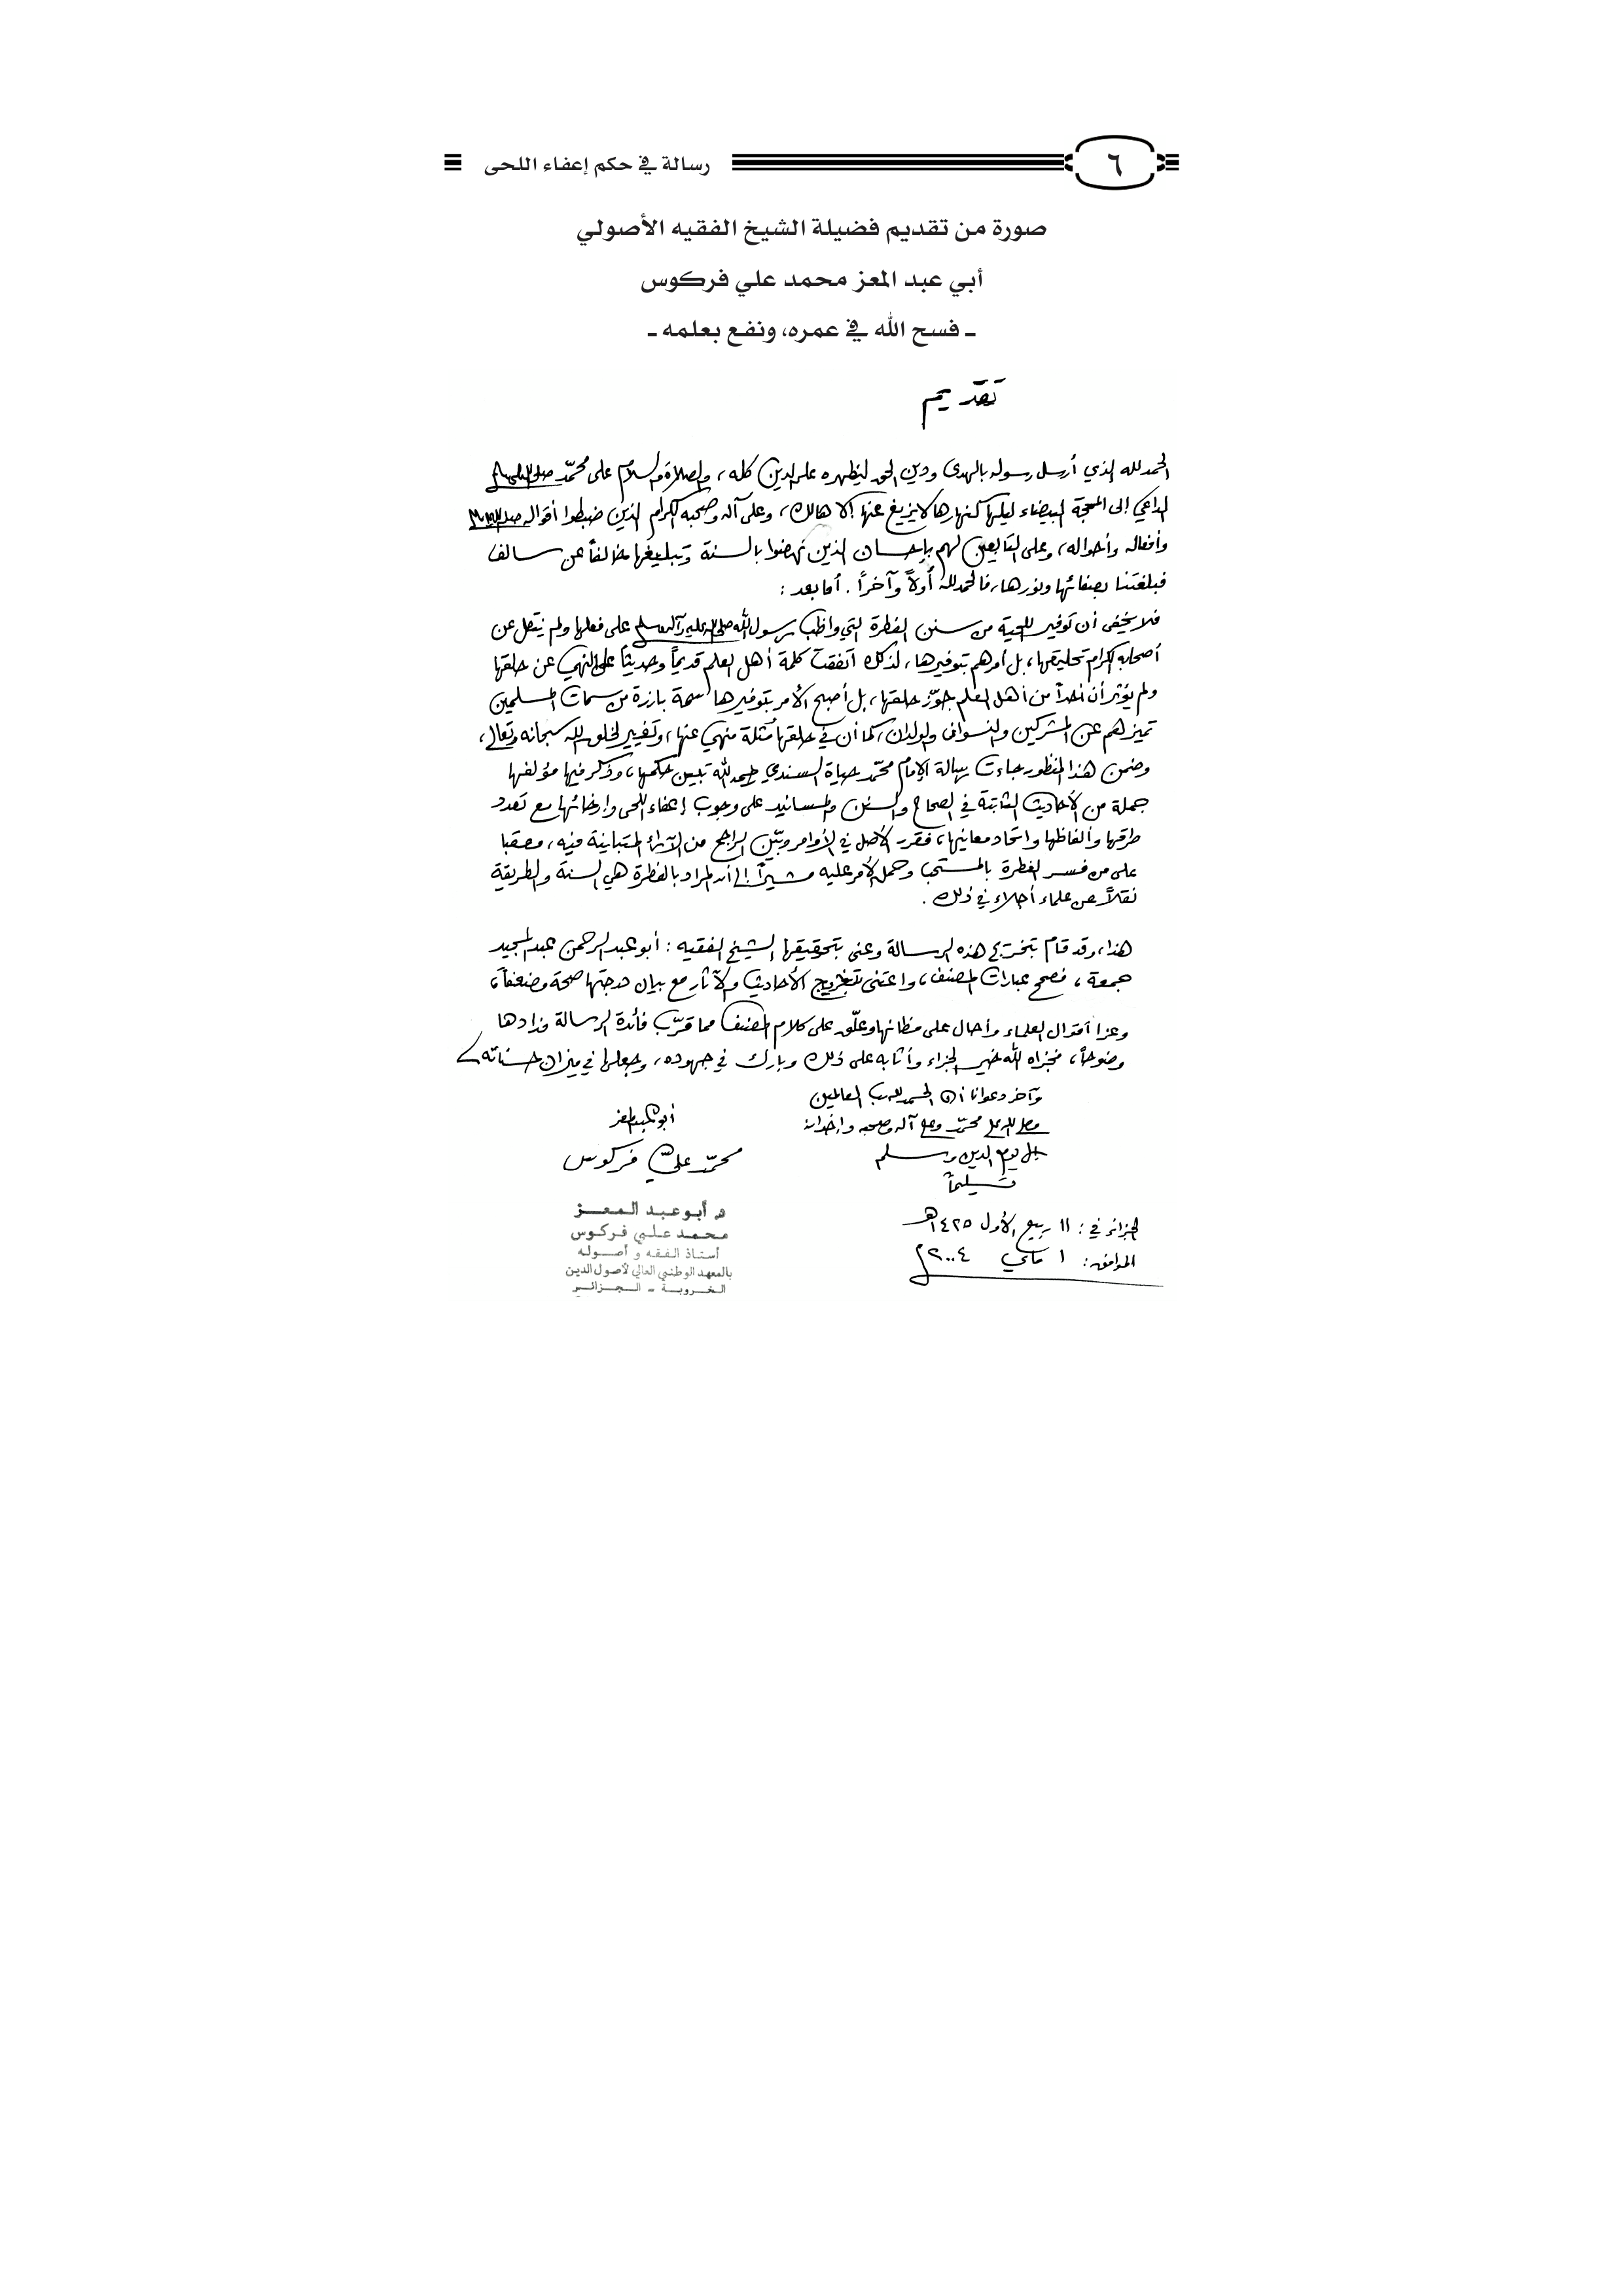 ٦
رسالة في حكم إعفاء اللحى
صورة من تقديم فضيلة الشيخ الفقيه الأصولي
أبي عبد المعز محمد علي فركوس
ـ فسح الله في عمره، ونفع بعلمه ـ
تقديم
الحمد لله الذي أرسل رسوله بالهدى ودين الحق ليظهره على الدين كله، والصلاة والسلام على محمّد
الداعي إلى المحجة البيضاء ليلها كنهارها لا يزيغ عنها إلا هالك، وعلى آله وصحبه الكرام الذين ضبطوا أقواله
وأفعاله وأحواله، وعلى التابعين لهم بإحسان الذين نهضوا بالسنة وتبليغها خالفاً عن سالف
فبلغتنا بصفائها ونورها، فالحمد لله أولاً وآخراً. أما بعد:
فلا يخفى أن توفير اللحية من سنن الفطرة التي واظب رسول الله صلى الله عليه وآله وسلم على فعلها ولم ينقل عن
أصحابه الكرام تحليقها، بل أمرهم بتوفيرها، لذلك اتفقت كلمة أهل العلم قديماً وحديثاً على النهي عن حلقها
ولم يؤثر أن أحداً من أهل العلم جوّز حلقها، بل أصبح الأمر بتوفيرها سمة بارزة من سمات المسلمين
تميزهم عن المشركين والنسوان والولدان، كما أن في حلقها مُثلة منهي عنها، وتغيير لخلق الله سبحانه وتعالى،
وضمن هذا المنظور جاءت رسالة الإمام محمّد حياة السندي رحمه الله تبين حكمها، وذكر فيها مؤلفها
جملة من الأحاديث الثابتة في الصحاح والسنن والمسانيد على وجوب إعفاء اللحى وإرخائها مع تعدد
طرقها وألفاظها واتحاد معانيها، فقرر الأصل في الأوامر وبيّن الراجح من الآراء المتباينة فيه، معقبا
على من فسر الفطرة بالمستحب وحمل الأمر عليه مشيراً إلى أن المراد بالفطرة هي السنة والطريقة
نقلاً عن علماء أجلاء في ذلك.
هذا، وقد قام بتخريج هذه الرسالة وعنى بتحقيقها الشيخ الفقيه: أبو عبد الرحمن عبد المجيد
جمعة، فصحح عبارات المصنف، واعتنى بتخريج الأحاديث والآثار مع بيان درجتها صحة وضعفاً،
وعزا أقوال العلماء وأحال على مظانها وعلّق على كلام المصنف مما قرّب فائدة الرسالة وزادها
وضوحاً، فجزاه الله خير الجزاء وأثابه على ذلك وبارك في جهوده، وجعلها في ميزان حسناته
وآخر دعوانا أن الحمد لله رب العالمين
وصلى الله على محمّد وعلى آله وصحبه وإخوانه
إلى يوم الدين وسلم
تسليماً
أبو عبد المعز
محمّد علي فركوس
الجزائر في: ١١ ربيع الأول ١٤٢٥هـ
الموافق: ١ ماي ٢٠٠٤م
د. أبو عبد المعز
محمد علي فركوس
أستاذ الفقه و أصوله
بالمعهد الوطني العالي لأصول الدين
الخروبة - الجزائر